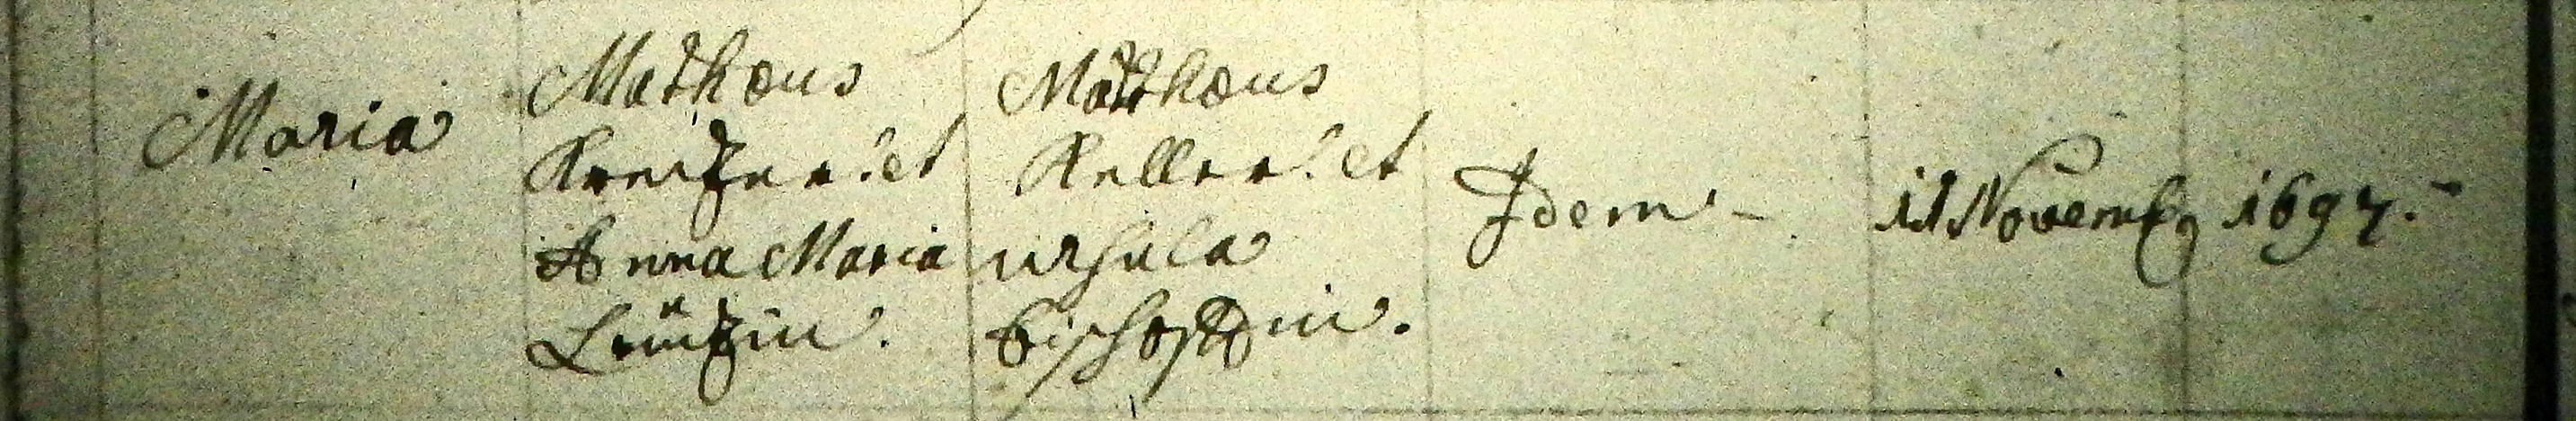 Maria
Matheus
Kreitzer. et
Anna Maria
Leutzin.
Mattheus
Keller. et
Ursula
Bischoffin.
Idem -
11 Novemb 1697.